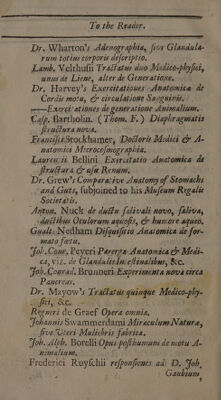 To the Reader.
Dr. Wharton's Adenographia, sive Glandula-
rum totius corporis descriptio.
Lamb. Velthusii Tractatus duo Medico-physici,
unus de Liene, alter de Generatione.
Dr. Harvey's Exercitationes Anatomicæ de
Cordis motu, & circulatione Sanguinis.
—Exercitationes de generatione Animalium.
Casp. Bartholin. (Thom. F.) Diaphragmatis
structura nova.
Francisci Stockhamer, Doctoris Medici & A-
natomici Microcosmographia.
Laurentii Bellini Exercitatio Anatomica de
structura & usu Renum.
Dr. Grew's Comparative Anatomy of Stomachs
and Guts, subjoined to his Musæum Regalis
Societatis.
Anton. Nuck de ductu salivali novo, saliva,
ductibus Oculorum aquosis, & humore aqueo.
Gualt. Nedham Disquisitio Anatomica de for-
mato fœtu.
Joh. Conr. Peyeri Parerga Anatomica & Medi-
ca, viz. de Glandulis Intestinalibus, &c.
Joh. Conrad. Brunneri Experimenta nova circa
Pancreas.
Dr. Mayow's Tractatus quinque Medico-phy-
sici, &c.
Regneri de Graef Opera omnia.
Johannis Swammerdami Miraculum Naturæ,
sive Uteri Muliebris fabrica.
Joh. Alph. Borelli Opus posthumum de motu A-
nimalium.
Frederici Ruyschii responsiones ad D. Joh.
Gaubium